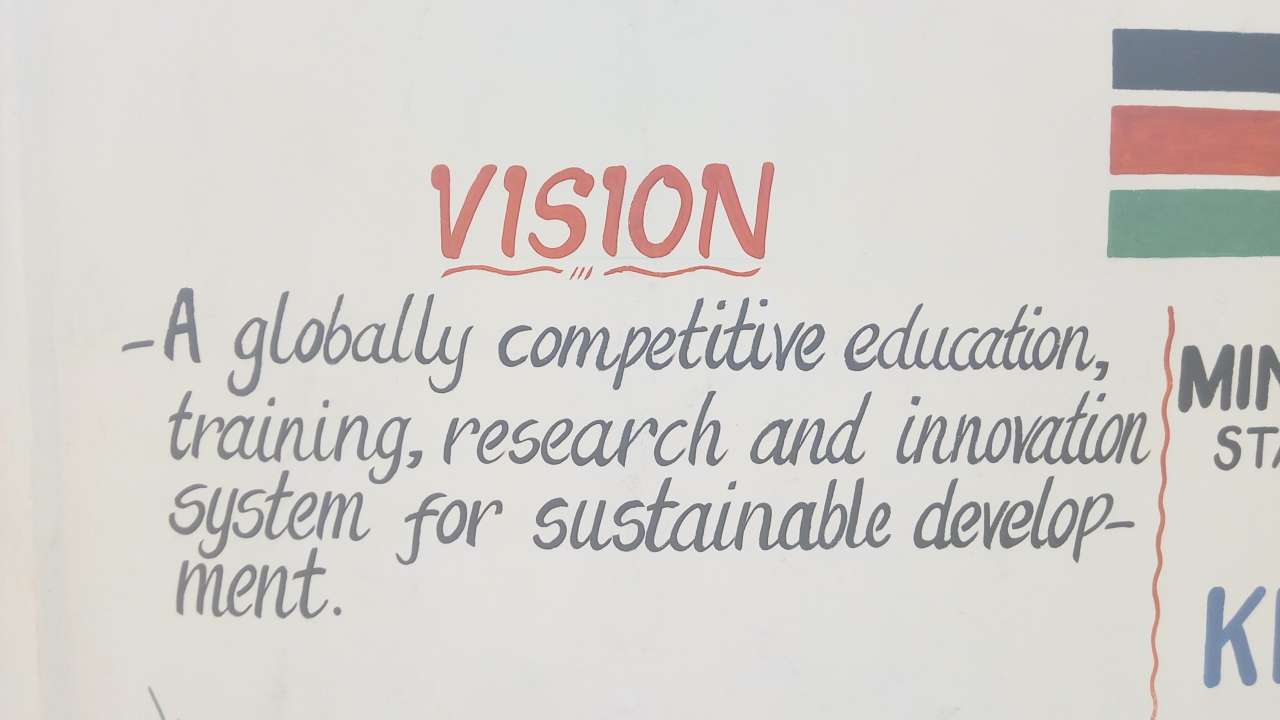 VISION
-A globally competitive education,
training, research and innovation
system for sustainable develop-
ment.